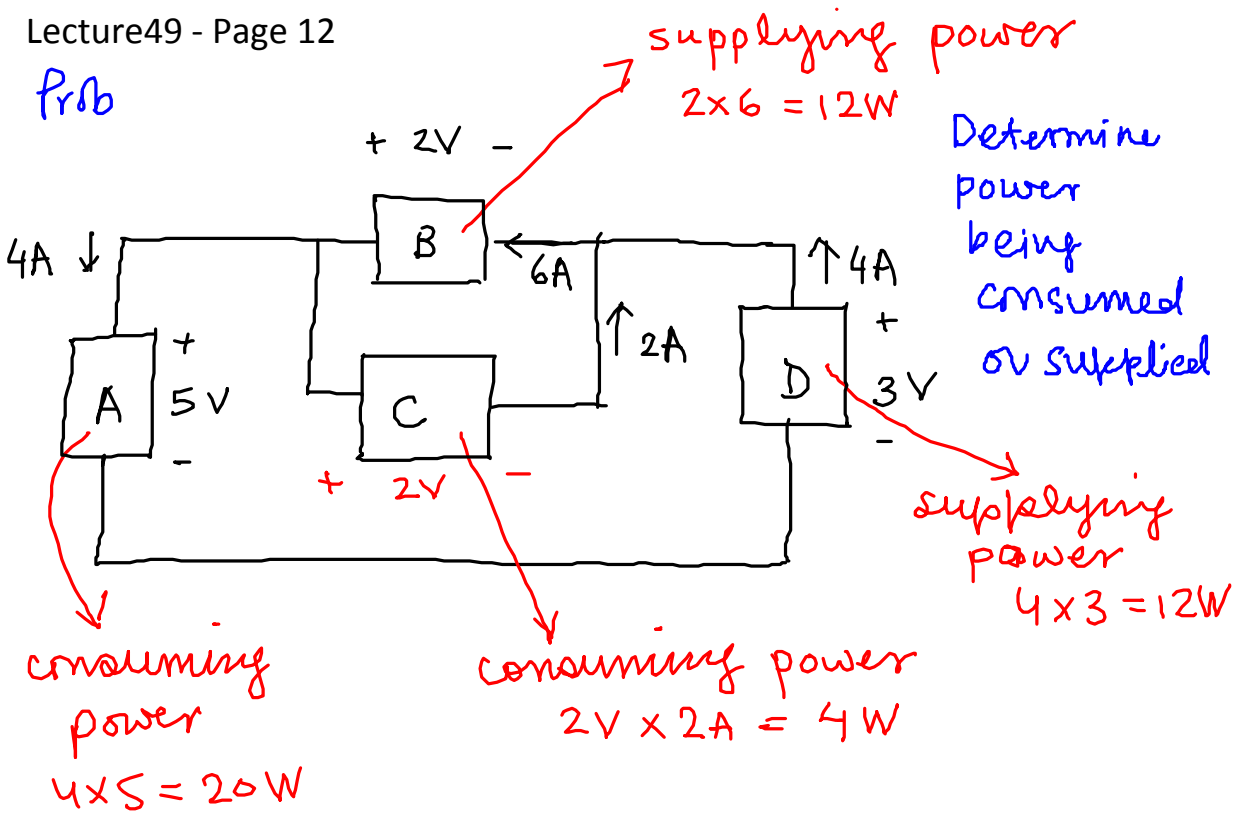 Lecture49 - Page 12
Prob
supplying power
2×6 = 12W
Determine
power
being
consumed
or supplied
+ 2V -
B
4A ↓
6A
↑ 4A
+
3V
-
D
↑ 2A
+
5V
-
A
C
+ 2V -
supplying
power
4×3 = 12W
consuming
power
4×5 = 20W
consuming power
2V × 2A = 4W